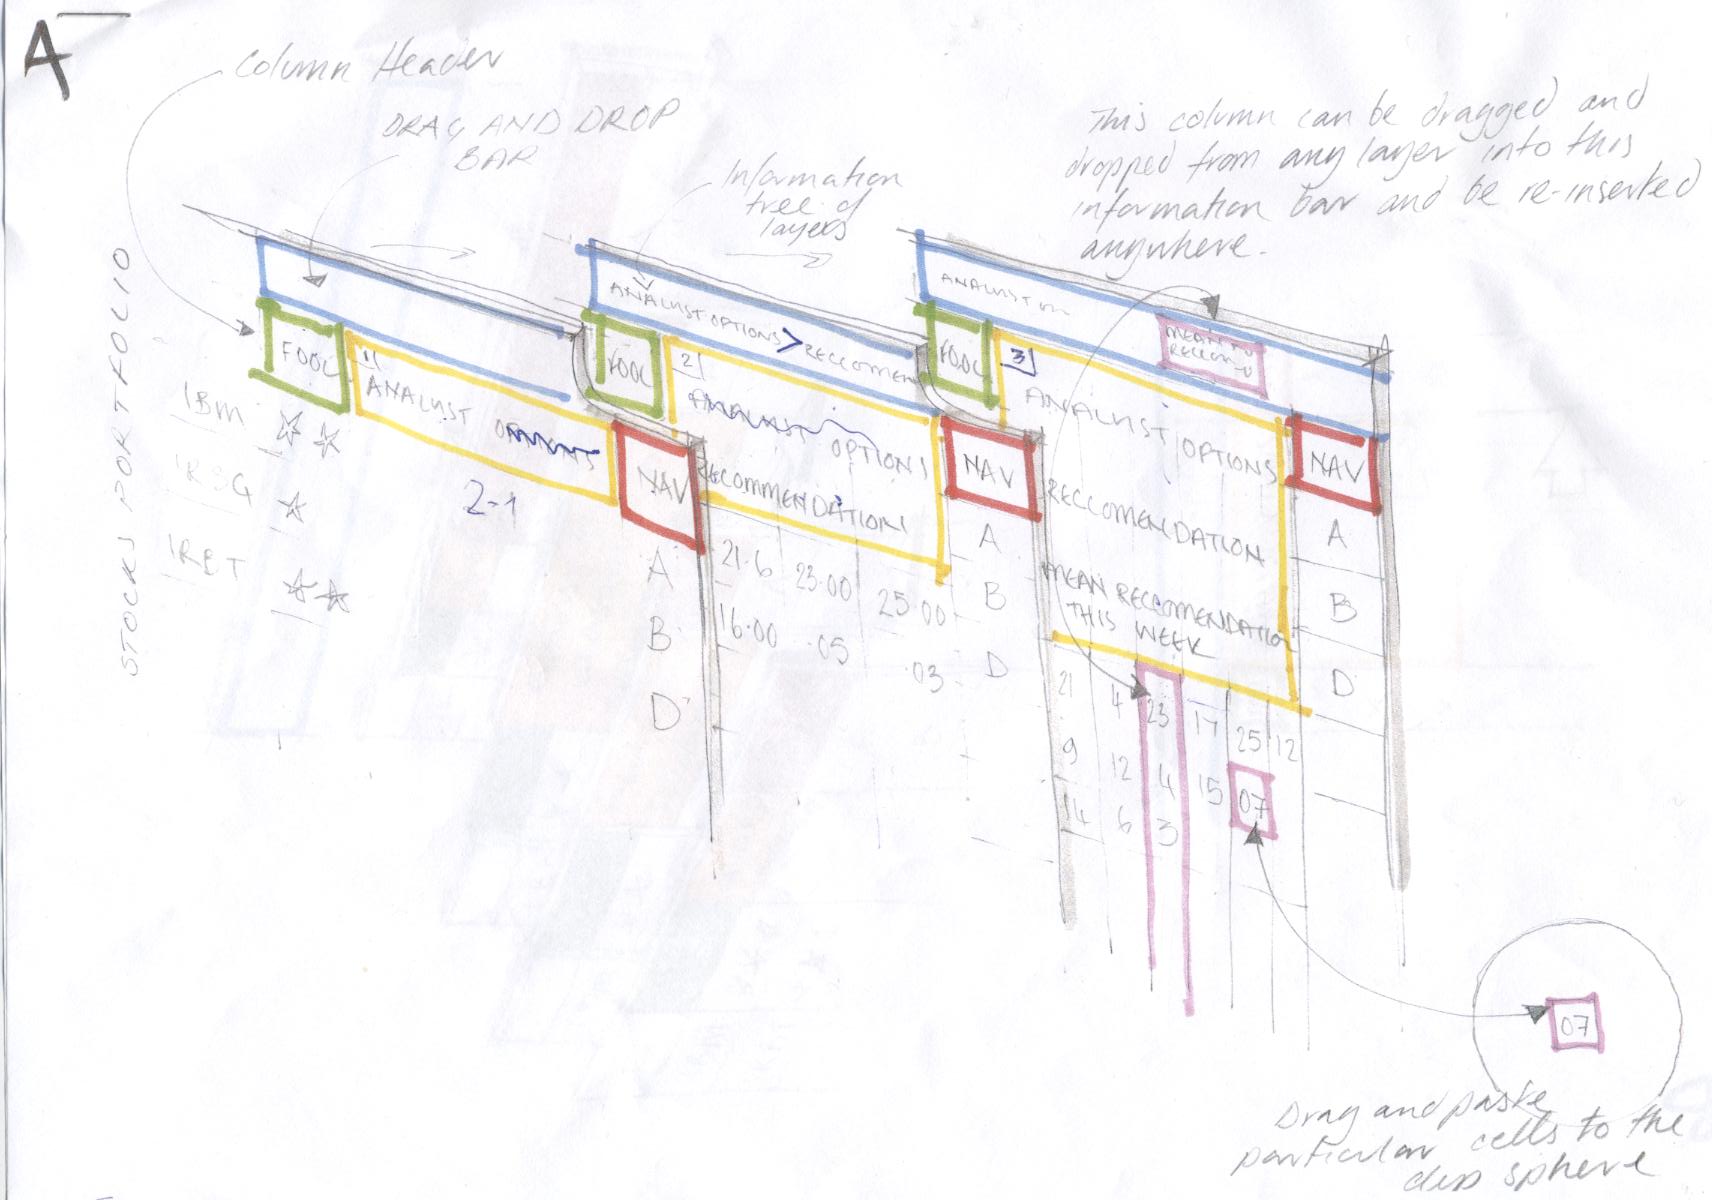 A
Column Header
DRAG AND DROP
BAR
Information
tree of
layers
This column can be dragged and
dropped from any layer into this
information bar and be re-inserted
anywhere.
STOCKS PORTFOLIO
FOOL
1
ANALYST
2-1
NAV
IBM
IRBT
A
B
D
ANALYST OPTIONS > RECCOMEN
FOOL
2
ANALYST OPTIONS
RECOMMENDATION
NAV
21.6 23.00 25.00
16.00 .05 .03
A
B
D
ANALYST
MEAN
RECCOM
FOOL
3
ANALYST OPTIONS
RECCOMENDATION
MEAN RECCOMENDATIO
THIS WEEK
NAV
A
B
D
21 4 23 17 25 12
9 12 4 15 07
14 6 3
07
Drag and paste
particular cells to the
sphere